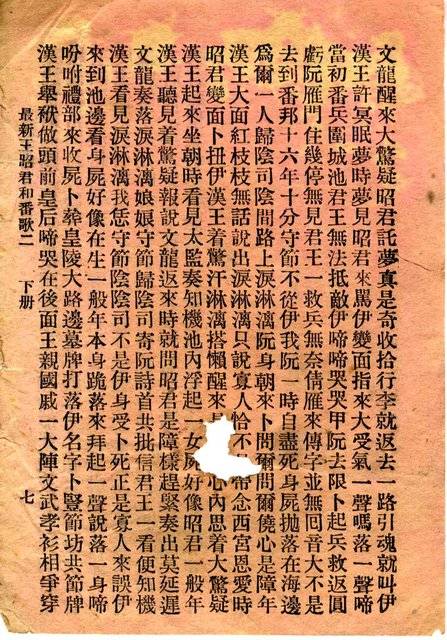 文龍醒來大驚疑昭君託夢真是奇收拾行李就返去一路引魂就叫伊
漢王許冥眠夢時夢見昭君來罵伊變面指來大受氣一聲嗎落一聲啼
當初番兵圍城池君王無法抵敵伊啼啼哭哭甲阮去限卜起兵救返圓
虧阮雁門住幾停無見君王一救兵無奈倩雁來傳字並無囘音大不是
去到番邦十六年十分守節不從伊我阮一時自盡死身屍拋落在海邊
爲爾一人歸陰司陰間路上淚淋漓阮身朝來卜問爾問爾僥心是障年
漢王大面紅枝枝無話說出淚淋漓只說寡人恰不是帶念西宮恩愛時
昭君變面卜扭伊漢王着驚汗淋漓搭懶醒來是 心內思着大驚疑
漢王起來坐朝時看見太監奏知機池內浮起一女屍好像昭君一般年
漢王聽見着驚疑報說文龍返來時就問昭君是障樣趕緊奏出莫延遲
文龍奏落淚淋漓娘娘守節歸陰司寄阮詩首共批信君王一看便知機
漢王看見淚淋漓我恁守節陰陰司不是伊身受卜死正是寡人來誤伊
來到池邊看身屍好像在生一般年本身跪落來拜起一聲說落一身啼
吩咐禮部來收屍卜葬皇陵大路邊墓牌打落伊名字卜豎節坊共節牌
漢王舉袱做頭前皇后啼哭在後面王親國戚一大陣文武孝衫相爭穿
最新王昭君和番歌二 下册 七